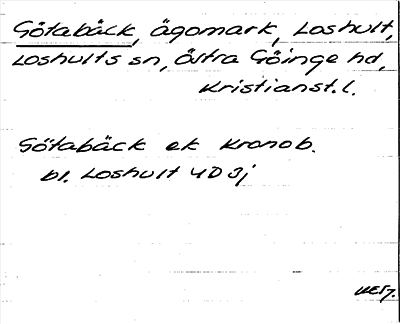 Götabäck, ägomark, Loshult,
Loshults sn, Östra Göinge hd,
Kristianst.l.
Götabäck ek Kronob.
bl. Loshult 4D 3j